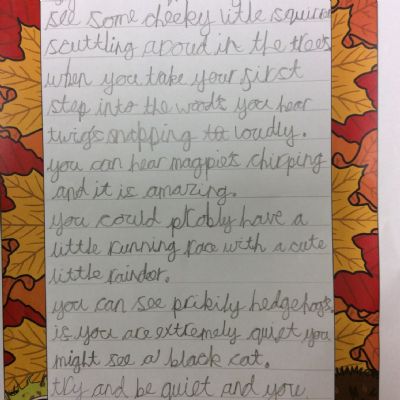 see some cheeky litle squirre
scuttling aroud in the trees
when you take your first
step into the woods you hear
twigs snapping to loudly.
you can hear magpies chirping
and it is amazing.
you could probly have a
little running race with a cute
little raindor.
you can see prikily hedgehogs.
is you are extremely quiet you
might see a black cat.
try and be quiet and you